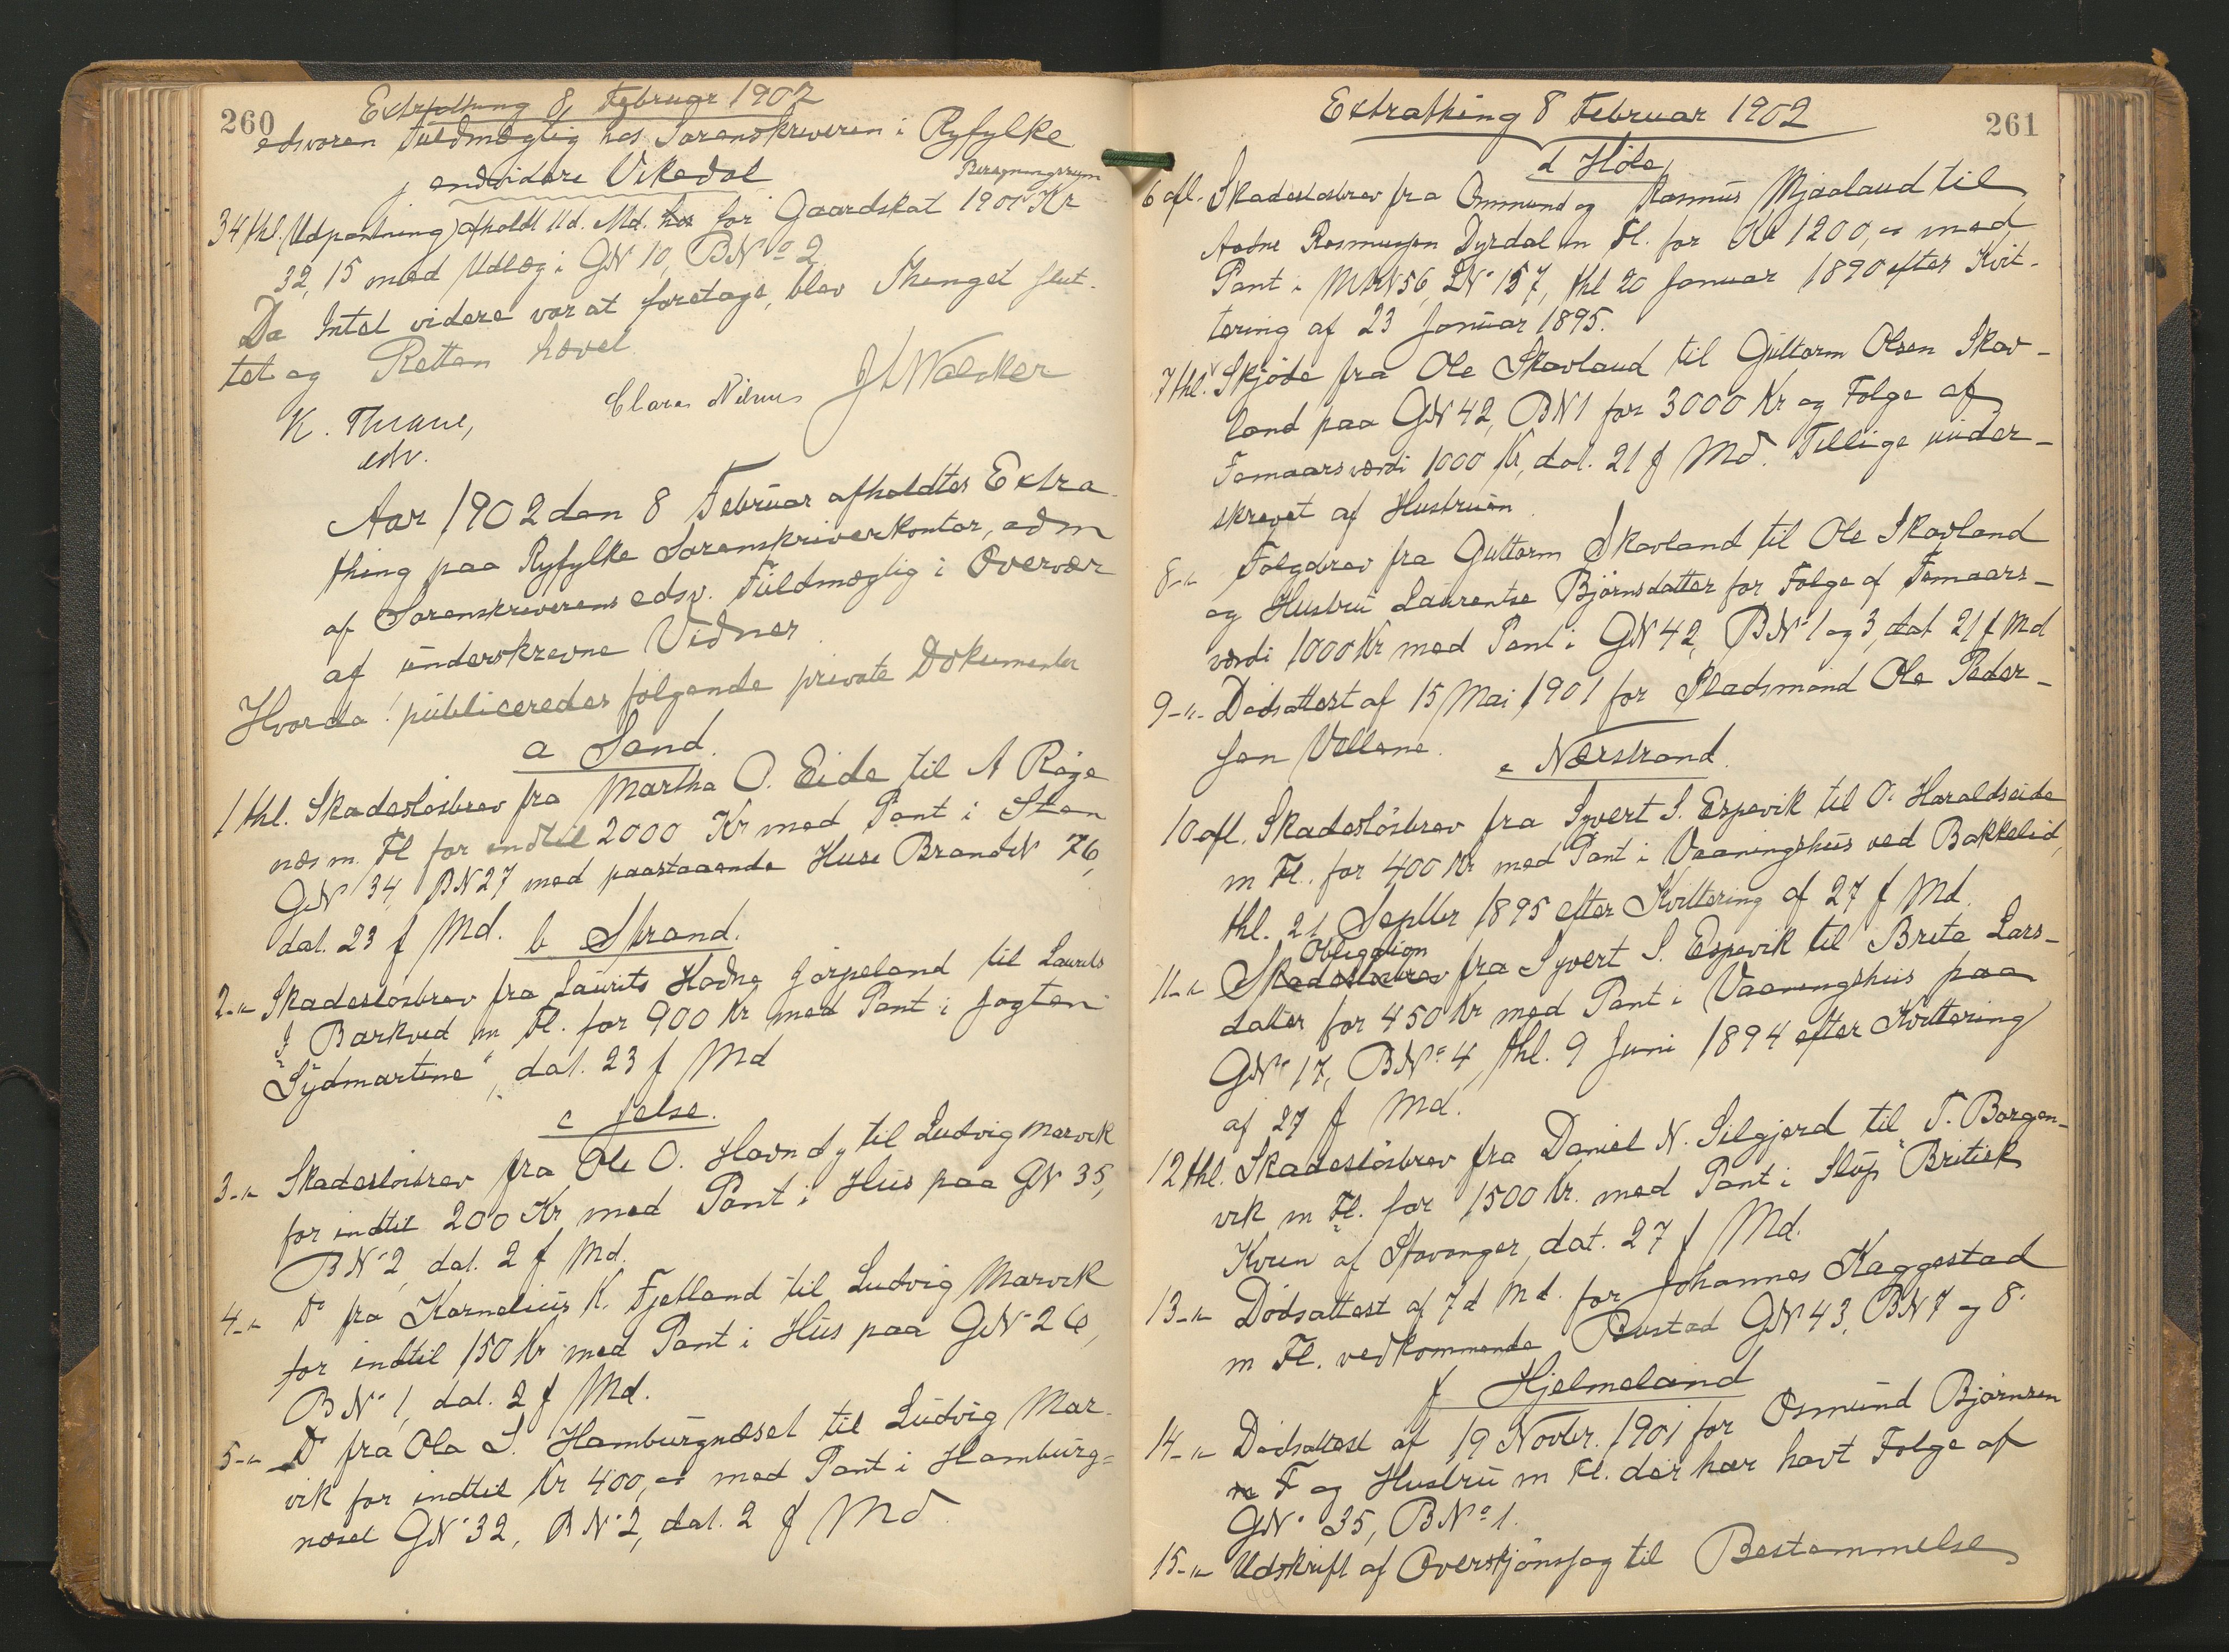 260
Extrathing 8 Februar 1902
edsvoren Fuldmægtig hos Sorenskriveren i Ryfylke
j endvidere Vikedal
34 thl. Udpantning afholdt 11 d. Md. for Gaardskat 1901 Kr
32,15 med Udlæg i GN 10, BNo 2
Da Intet videre var at foretage, blev Thinget slut-
tet og Retten hævet
K. Thrane,
edv.
Aar 1902 den 8 Februar afholdtes Extra-
thing paa Ryfylke Sorenskriverkontor, adm
af Sorenskriverens edsv. Fuldmægtig i Overvær
af underskrevne Vidner.
Hvorda: publiceredes følgende private Dokumenter
a Sand.
1 thl. Skadesløsbrev fra Martha O. Eide til A Røge
næs m. Fl for indtil 2000 Kr med Pant i Sten
GN 34, BN 27 med paastaaende Huse BrandN 76,
dat. 23 f Md.
b Strand.
2-"- Skadesløsbrev fra Laurits Hodne Jørpeland til Laurits
J Barkved m Fl. for 900 Kr med Pant i Jagten
"Sydmartine", dat. 23 f Md
c Jelse.
3-"- Skadesløsbrev fra Ole O. Havndy til Ludvig Marvik
for indtil 200 Kr med Pant i Hus paa GN 35,
BN 2, dat. 2 f Md.
4-"- Do fra Kornelius K. Fjetland til Ludvig Marvik
for indtil 150 Kr med Pant i Hus paa GN 26,
BN 1, dat. 2 f Md.
5-"- Do fra Ola S. Hamburgnæset til Ludvig Mar-
vik for indtil Kr 400,00 med Pant i Hamburg-
næset GN 32, BN 2, dat. 2 f Md.
261
Extrathing 8 Februar 1902
d Høle
6 afl. Skadesløsbrev fra Ommund og Rasmus Mjaaland til
Aadne Rasmussen Dyrdal m Fl. for Kr 1200,00 med
Pant i MN 56, LN 157, thl 20 Januar 1890 efter Kvit-
tering af 23 Januar 1895.
7 thl. Skjøde fra Ole Skavland til Guttorm Olsen Skav-
land paa GN 42, BN 1 for 3000 Kr og Følge af
Femaarsværdi 1000 Kr, dat. 21 f Md. Tillige under-
skrevet af Hustruen.
8-"- Følgebrev fra Guttorm Skavland til Ole Skavland
og Hustru Laurentse Bjørnsdatter for Følge af Femaars-
værdi 1000 Kr med Pant i GN 42, BN 1 og 3, dat 21 f Md
9-"- Dødsattest af 15 Mai 1901 for Pladsmand Ole Peder-
sen Vallene.
e Nærstrand.
10 afl. Skadesløsbrev fra Syvert S. Espevik til O. Haraldseide
m Fl. for 400 Kr med Pant i Vaaningshus ved Bakkelid,
thl. 21 Septbr 1895 efter Kvittering af 27 f Md.
Obligation
11-"- Skadesløsbrev fra Syvert S. Espevik til Brita Lars-
datter for 450 Kr med Pant i Vaaningshus paa
GN 17, BNo 4, thl. 9 Juni 1894 efter Kvittering
af 27 f Md.
12 thl. Skadesløsbrev fra Daniel N. Silgjerd til T. Borgen-
vik m Fl. for 1500 Kr. med Pant i Slup "Britisk
Kven af Stavanger, dat. 27 f Md.
13-"- Dødsattest af 7 d Md. for Johannes Kaggestad
m Fl. vedkommende Bustad GN 43, BN 7 og 8.
f Hjelmeland
14-"- Dødsattest af 19 Novbr. 1901 for Osmund Bjørnsen
F og Hustru m Fl. der har havt Følge af
GN 35, BNo 1.
15-"- Udskrift af Overskjønssag til Bestemmelse